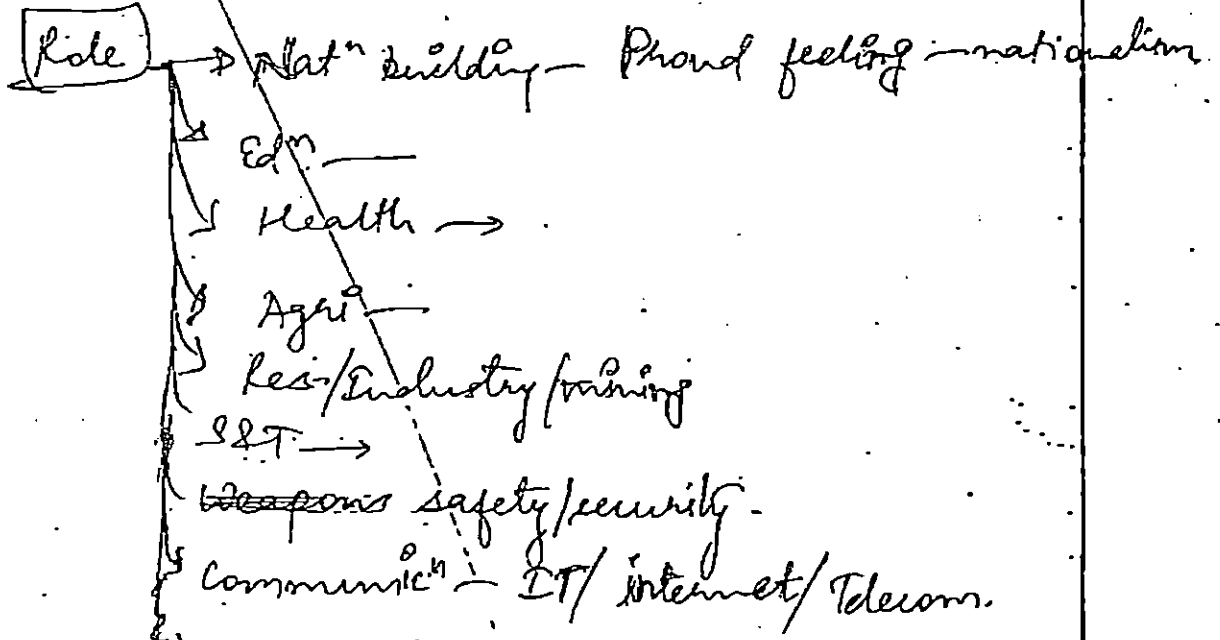 Role → Natⁿ building — Proud feeling — nationalism
Edⁿ. —
Health →
Agri —
Res./Industry/mining
S&T. →
Weapons safety/security.
Communicⁿ — IT/internet/Telecom.